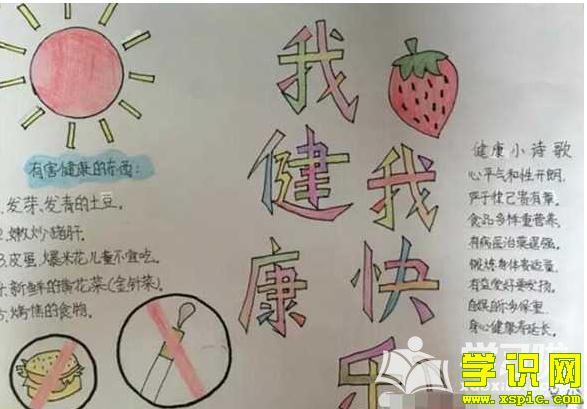 我健康
我快乐
有害健康的东西：
1.发芽、发青的土豆。
2.嫩炒猪肝。
3.皮蛋、爆米花儿童不宜吃。
4.新鲜的黄花菜(金针菜)。
5.烤焦的食物。
健康小诗歌
心平气和性开朗，
严于律己贵有常，
食品多样重营养，
锻炼身体要适量，
身心健康寿延长。
学识网
www.xspic.com